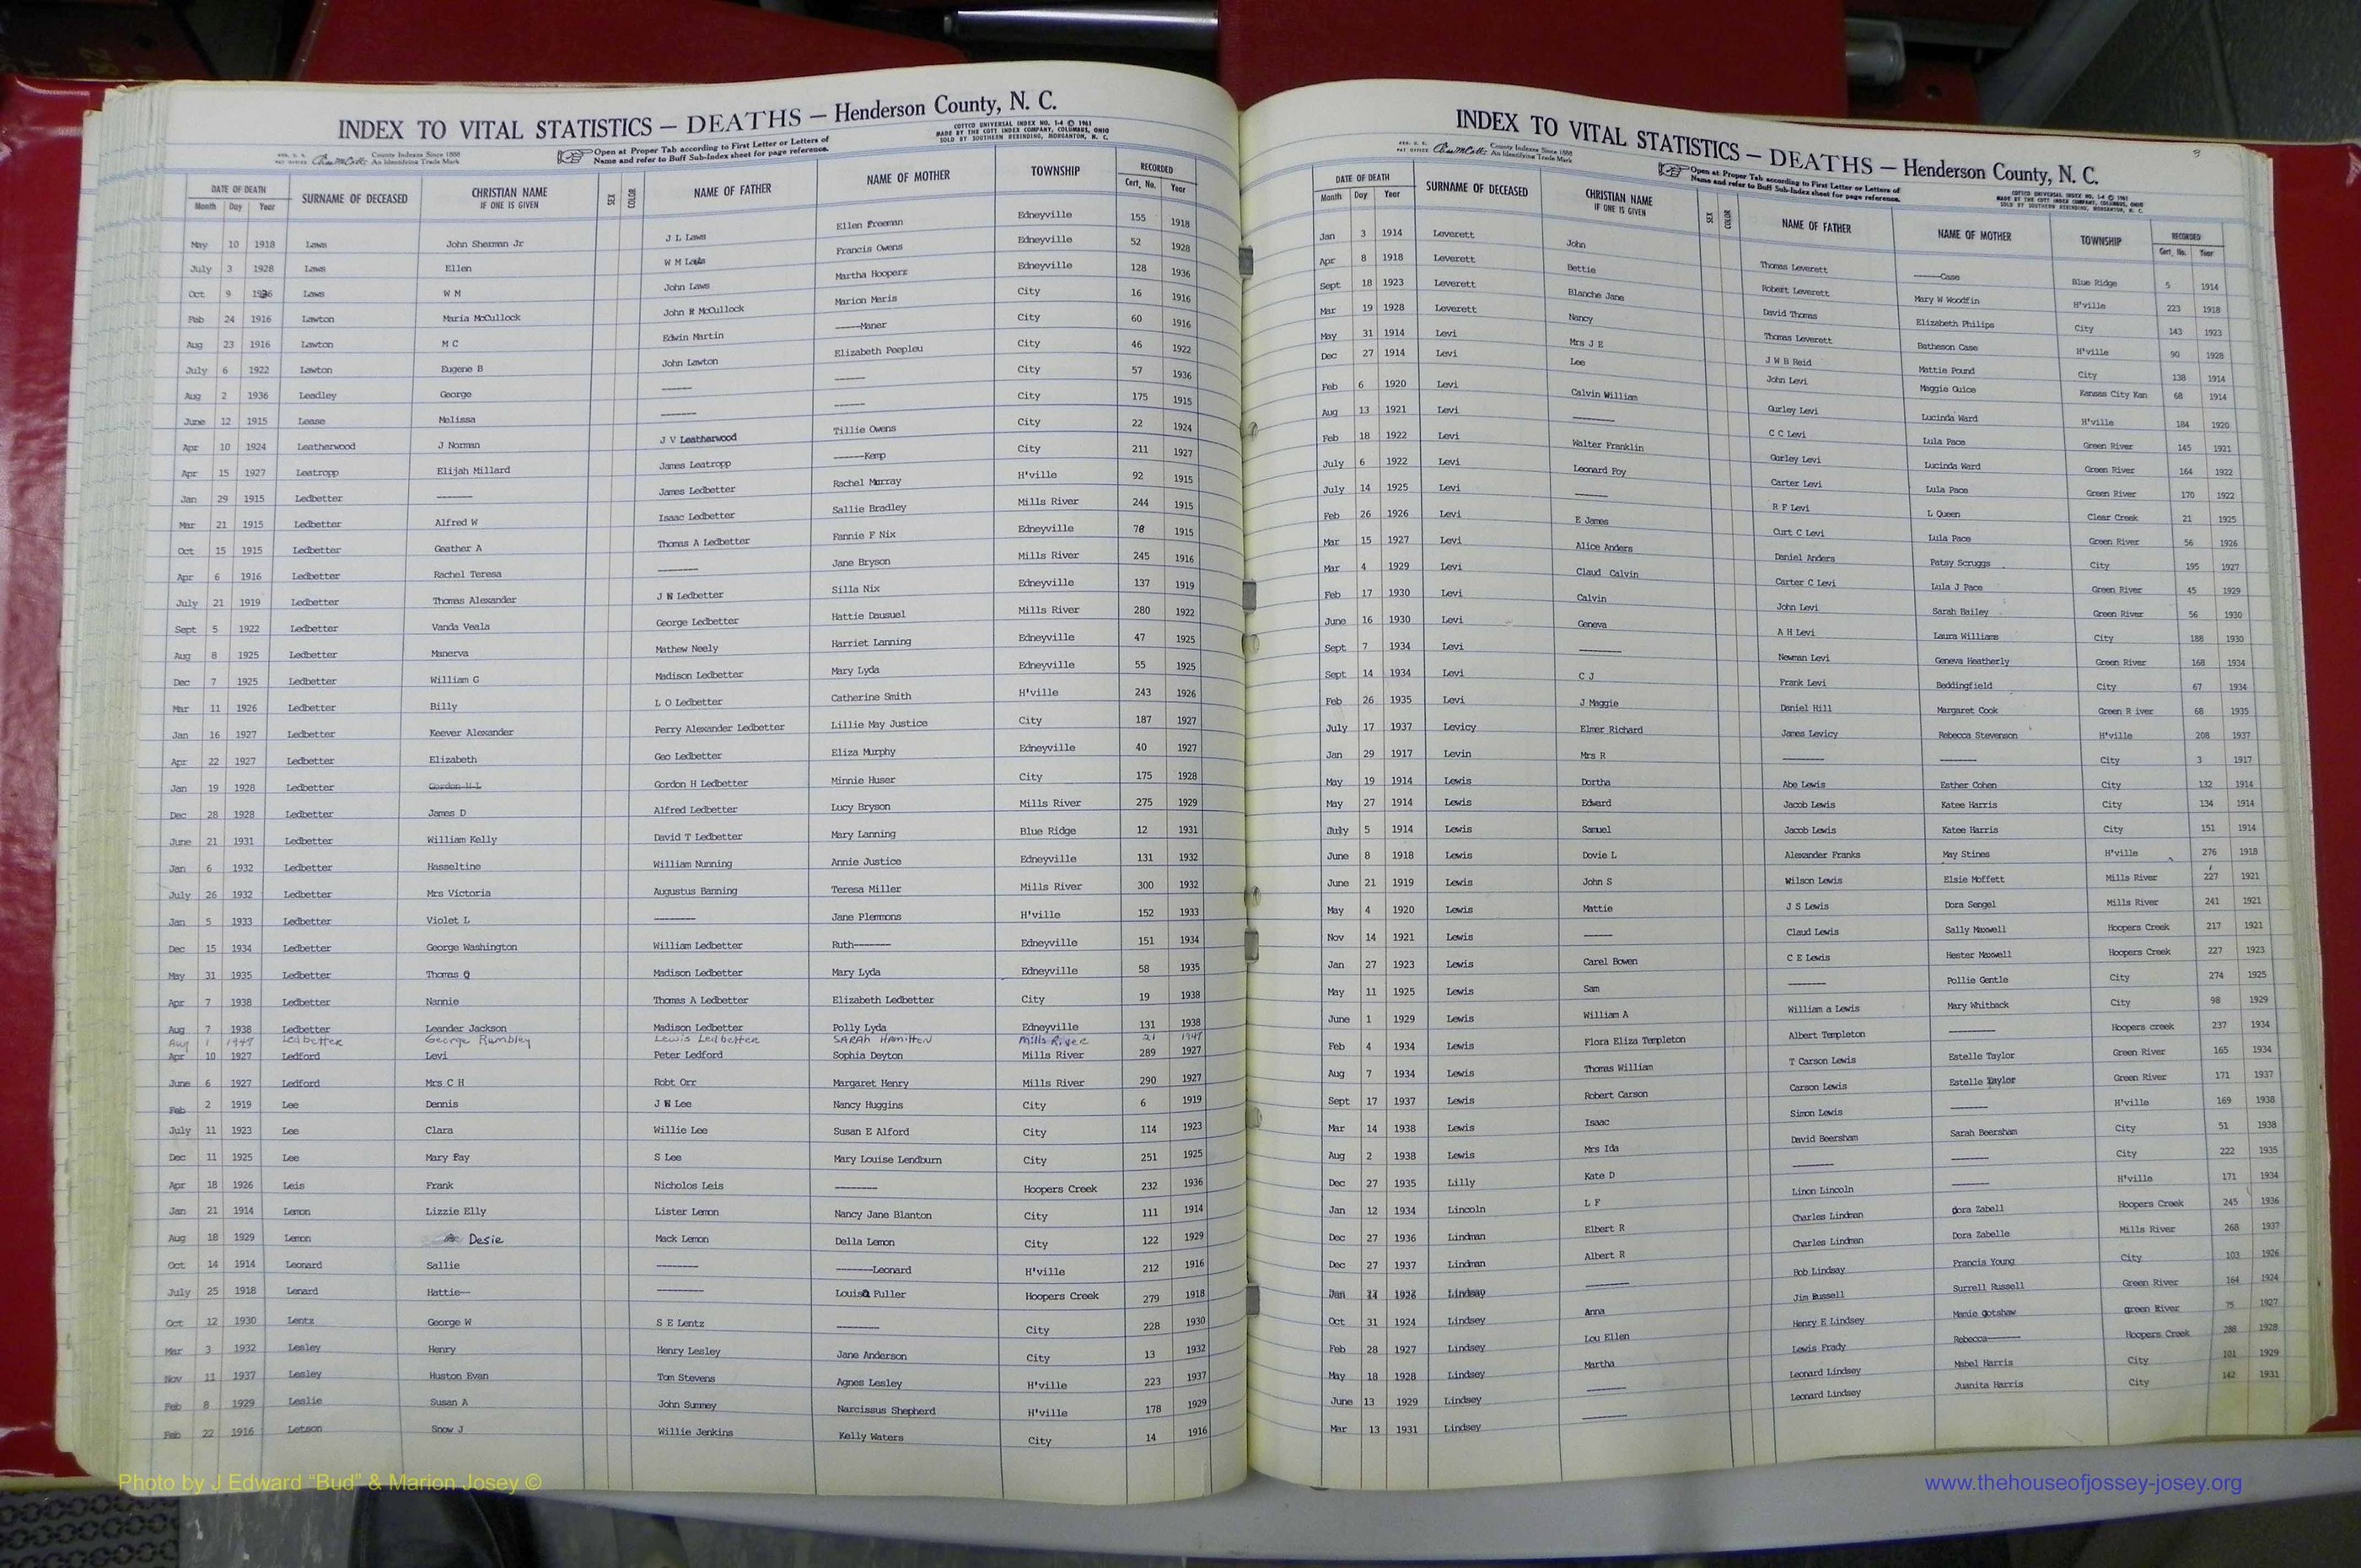 INDEX TO VITAL STATISTICS — DEATHS — Henderson County, N. C.
County Indexes Since 1888
An Identifying Trade Mark
Open at Proper Tab according to First Letter or Letters of
Name and refer to Buff Sub-Index sheet for page reference.
COTTCO UNIVERSAL INDEX NO. 1-4 © 1961
MADE BY THE COTT INDEX COMPANY, COLUMBUS, OHIO
SOLD BY SOUTHERN REBINDING, MORGANTON, N. C.
DATE OF DEATH SURNAME OF DECEASED CHRISTIAN NAME IF ONE IS GIVEN SEX COLOR NAME OF FATHER NAME OF MOTHER TOWNSHIP RECORDED
Month Day Year Cert. No. Year
May 10 1918 Laws John Sherman Jr J L Laws Ellen Freeman Edneyville 155 1918
July 3 1928 Laws Ellen W M Laws Francis Owens Edneyville 52 1928
Oct 9 1936 Laws W M John Laws Martha Hooperz Edneyville 128 1936
Feb 24 1916 Lawton Maria McCullock John R McCullock Marion Meris City 16 1916
Aug 23 1916 Lawton M C Edwin Martin -----Maner City 60 1916
July 6 1922 Lawton Eugene B John Lawton Elizabeth Peepleu City 46 1922
Aug 2 1936 Leadley George ------ ------ City 57 1936
June 12 1915 Lease Melissa ------- ------ City 175 1915
Apr 10 1924 Leatherwood J Norman J V Leatherwood Tillie Owens City 22 1924
Apr 15 1927 Leatropp Elijah Millard James Leatropp ------Kemp City 211 1927
Jan 29 1915 Ledbetter ------- James Ledbetter Rachel Murray H'ville 92 1915
Mar 21 1915 Ledbetter Alfred W Isaac Ledbetter Sallie Bradley Mills River 244 1915
Oct 15 1915 Ledbetter Geather A Thomas A Ledbetter Fannie F Nix Edneyville 78 1915
Apr 6 1916 Ledbetter Rachel Teresa -------- Jane Bryson Mills River 245 1916
July 21 1919 Ledbetter Thomas Alexander J W Ledbetter Silla Nix Edneyville 137 1919
Sept 5 1922 Ledbetter Vanda Veala George Ledbetter Hattie Dausuel Mills River 280 1922
Aug 8 1925 Ledbetter Manerva Mathew Neely Harriet Lanning Edneyville 47 1925
Dec 7 1925 Ledbetter William G Madison Ledbetter Mary Lyda Edneyville 55 1925
Mar 11 1926 Ledbetter Billy L O Ledbetter Catherine Smith H'ville 243 1926
Jan 16 1927 Ledbetter Keever Alexander Perry Alexander Ledbetter Lillie May Justice City 187 1927
Apr 22 1927 Ledbetter Elizabeth Geo Ledbetter Eliza Murphy Edneyville 40 1927
Jan 19 1928 Ledbetter Gordon H L Gordon H Ledbetter Minnie Huser City 175 1928
Dec 28 1928 Ledbetter James D Alfred Ledbetter Lucy Bryson Mills River 275 1929
June 21 1931 Ledbetter William Kelly David T Ledbetter Mary Lanning Blue Ridge 12 1931
Jan 6 1932 Ledbetter Hasseltine William Nunning Annie Justice Edneyville 131 1932
July 26 1932 Ledbetter Mrs Victoria Augustus Banning Teresa Miller Mills River 300 1932
Jan 5 1933 Ledbetter Violet L -------- Jane Plemmons H'ville 152 1933
Dec 15 1934 Ledbetter George Washington William Ledbetter Ruth------- Edneyville 151 1934
May 31 1935 Ledbetter Thomas Q Madison Ledbetter Mary Lyda Edneyville 58 1935
Apr 7 1938 Ledbetter Nannie Thomas A Ledbetter Elizabeth Ledbetter City 19 1938
Aug 7 1938 Ledbetter Leander Jackson Madison Ledbetter Polly Lyda Edneyville 131 1938
Aug 1 1947 Ledbetter George Rumbley Lewis Ledbetter SARAH HAMILTON Mills River 21 1947
Apr 10 1927 Ledford Levi Peter Ledford Sophia Deyton Mills River 289 1927
June 6 1927 Ledford Mrs C H Robt Orr Margaret Henry Mills River 290 1927
Feb 2 1919 Lee Dennis J W Lee Nancy Huggins City 6 1919
July 11 1923 Lee Clara Willie Lee Susan E Alford City 114 1923
Dec 11 1925 Lee Mary Fay S Lee Mary Louise Lendburn City 251 1925
Apr 18 1926 Leis Frank Nicholos Leis -------- Hoopers Creek 232 1936
Jan 21 1914 Lemon Lizzie Elly Lister Lemon Nancy Jane Blanton City 111 1914
Aug 18 1929 Lemon Desie Mack Lemon Della Lemon City 122 1929
Oct 14 1914 Leonard Sallie -------- -------Leonard H'ville 212 1916
July 25 1918 Lenard Hattie-- --------- Louisa Fuller Hoopers Creek 279 1918
Oct 12 1930 Lentz George W S E Lentz -------- City 228 1930
Mar 3 1932 Lesley Henry Henry Lesley Jane Anderson City 13 1932
Nov 11 1937 Lesley Huston Evan Tom Stevens Agnes Lesley H'ville 223 1937
Feb 8 1929 Leslie Susan A John Summey Narcissus Shepherd H'ville 178 1929
Feb 22 1916 Letson Snow J Willie Jenkins Kelly Waters City 14 1916
INDEX TO VITAL STATISTICS — DEATHS — Henderson County, N. C.
County Indexes Since 1888
An Identifying Trade Mark
Open at Proper Tab according to First Letter or Letters of
Name and refer to Buff Sub-Index sheet for page reference.
COTTCO UNIVERSAL INDEX NO. 1-4 © 1961
MADE BY THE COTT INDEX COMPANY, COLUMBUS, OHIO
SOLD BY SOUTHERN REBINDING, MORGANTON, N. C.
DATE OF DEATH SURNAME OF DECEASED CHRISTIAN NAME IF ONE IS GIVEN SEX COLOR NAME OF FATHER NAME OF MOTHER TOWNSHIP RECORDED
Month Day Year Cert. No. Year
Jan 3 1914 Leverett John Thomas Leverett ------Case Blue Ridge 5 1914
Apr 8 1918 Leverett Bettie Robert Leverett Mary W Woodfin H'ville 223 1918
Sept 18 1923 Leverett Blanche Jane David Thomas Elizabeth Philips City 143 1923
Mar 19 1928 Leverett Nancy Thomas Leverett Batheson Case H'ville 90 1928
May 31 1914 Levi Mrs J E J W B Reid Mattie Pound City 138 1914
Dec 27 1914 Levi Lee John Levi Maggie Guice Kansas City Kan 68 1914
Feb 6 1920 Levi Calvin William Gurley Levi Lucinda Ward H'ville 184 1920
Aug 13 1921 Levi -------- C C Levi Lula Pace Green River 145 1921
Feb 18 1922 Levi Walter Franklin Gurley Levi Lucinda Ward Green River 164 1922
July 6 1922 Levi Leonard Foy Carter Levi Lula Pace Green River 170 1922
July 14 1925 Levi ------ R F Levi L Queen Clear Creek 21 1925
Feb 26 1926 Levi E James Curt C Levi Lula Pace Green River 56 1926
Mar 15 1927 Levi Alice Anders Daniel Anders Patsy Scruggs City 195 1927
Mar 4 1929 Levi Claud Calvin Carter C Levi Lula J Pace Green River 45 1929
Feb 17 1930 Levi Calvin John Levi Sarah Bailey Green River 56 1930
June 16 1930 Levi Geneva A H Levi Laura Williams City 188 1930
Sept 7 1934 Levi -------- Newman Levi Geneva Heatherly Green River 168 1934
Sept 14 1934 Levi C J Frank Levi Beddingfield City 67 1934
Feb 26 1935 Levi J Maggie Daniel Hill Margaret Cook Green R iver 68 1935
July 17 1937 Levicy Elmer Richard James Levicy Rebecca Stevenson H'ville 208 1937
Jan 29 1917 Levin Mrs R -------- ------- City 3 1917
May 19 1914 Lewis Dortha Abe Lewis Esther Cohen City 132 1914
May 27 1914 Lewis Edward Jacob Lewis Katee Harris City 134 1914
July 5 1914 Lewis Samuel Jacob Lewis Katee Harris City 151 1914
June 8 1918 Lewis Dovie L Alexander Franks May Stines H'ville 276 1918
June 21 1919 Lewis John S Wilson Lewis Elsie Moffett Mills River 227 1921
May 4 1920 Lewis Mattie J S Lewis Dora Sengel Mills River 241 1921
Nov 14 1921 Lewis ------ Claud Lewis Sally Maxwell Hoopers Creek 217 1921
Jan 27 1923 Lewis Carel Bowen C E Lewis Hester Maxwell Hoopers Creek 227 1923
May 11 1925 Lewis Sam ------- Pollie Gentle City 274 1925
June 1 1929 Lewis William A William a Lewis Mary Whitback City 98 1929
Feb 4 1934 Lewis Flora Eliza Templeton Albert Templeton --------- Hoopers creek 237 1934
Aug 7 1934 Lewis Thomas William T Carson Lewis Estelle Taylor Green River 165 1934
Sept 17 1937 Lewis Robert Carson Carson Lewis Estelle Taylor Green River 171 1937
Mar 14 1938 Lewis Isaac Simon Lewis ------- H'ville 169 1938
Aug 2 1938 Lewis Mrs Ida David Beersham Sarah Beersham City 51 1938
Dec 27 1935 Lilly Kate D -------- ------- City 222 1935
Jan 12 1934 Lincoln L F Linon Lincoln ------- H'ville 171 1934
Dec 27 1936 Lindman Elbert R Charles Lindman dora Zabell Hoopers Creek 245 1936
Dec 27 1937 Lindman Albert R Charles Lindman Dora Zabelle Mills River 268 1937
Jan 14 1926 Lindsay -------- Bob Lindsay Francis Young City 103 1926
Oct 31 1924 Lindsey Anna Jim Russell Surrell Russell Green River 164 1924
Feb 28 1927 Lindsey Lou Ellen Henry E Lindsey Mamie gotshaw green River 75 1927
May 18 1928 Lindsey Martha Lewis Prady Rebecca------ Hoopers Creek 288 1928
June 13 1929 Lindsey -------- Leonard Lindsey Mabel Harris City 101 1929
Mar 13 1931 Lindsey -------- Leonard Lindsey Juanita Harris City 142 1931
Photo by J Edward “Bud” & Marion Josey ©
www.thehouseofjossey-josey.org